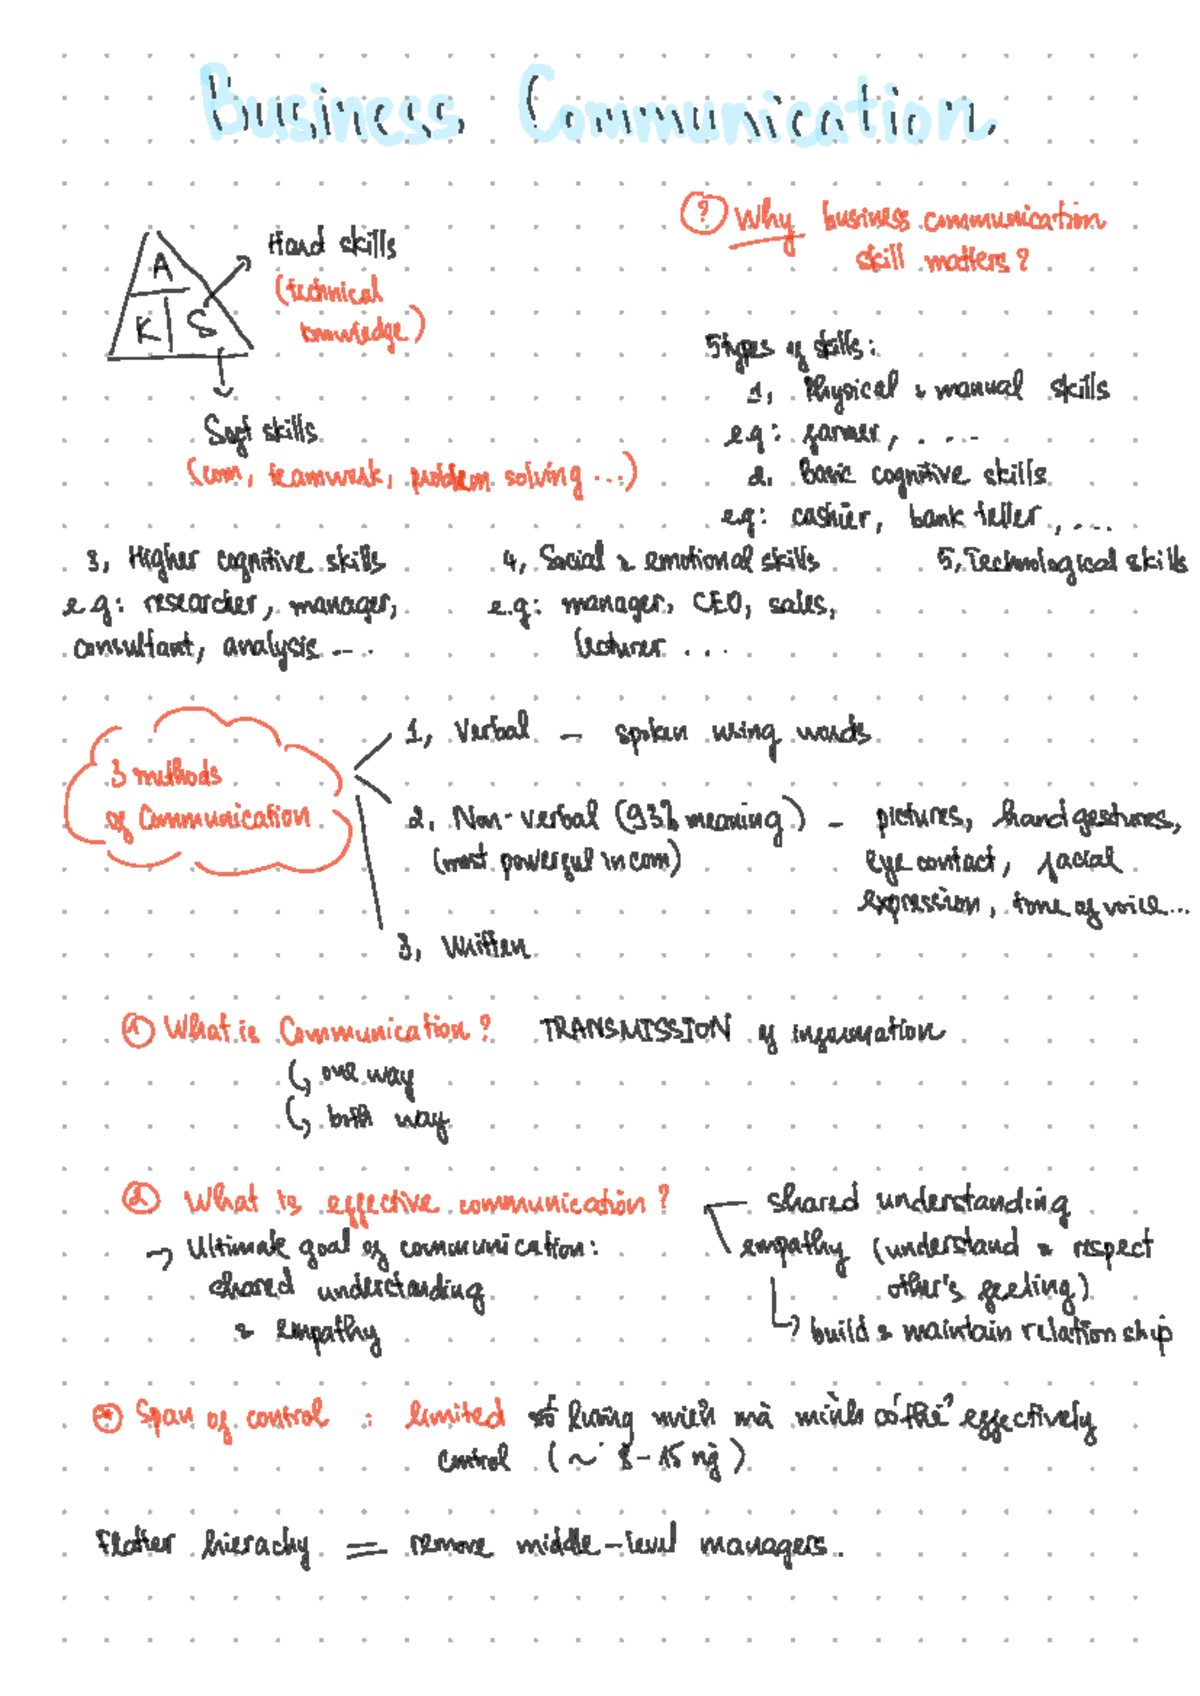 Business Communication
A
K S
Hard skills
(technical
knowledge)
Soft skills
(com, teamwork, problem solving ...)
? Why business communication
skill matters?
5 types of skills:
1, Physical & manual skills
e.g: farmer, ....
2. Basic cognitive skills
e.g: cashier, bank teller, ....
3, Higher cognitive skills
e.g: researcher, manager,
consultant, analysis ...
4, Social & emotional skills
e.g: manager, CEO, sales,
lecturer ...
5, Technological skills
3 methods
of Communication
1, Verbal – spoken using words
2, Non-verbal (93% meaning) – pictures, hand gestures,
(most powerful in com) eye contact, facial
expression, tone of voice...
3, Written
① What is Communication? TRANSMISSION of information
↳ one way
↳ both way
② What is effective communication?
→ Ultimate goal of communication:
shared understanding
& empathy
shared understanding
empathy (understand & respect
other's feeling)
↳ build & maintain relationship
Span of control : limited số lượng mà mình có thể effectively
control (~ 8-15 ng)
Flatter hierachy = remove middle-level managers.